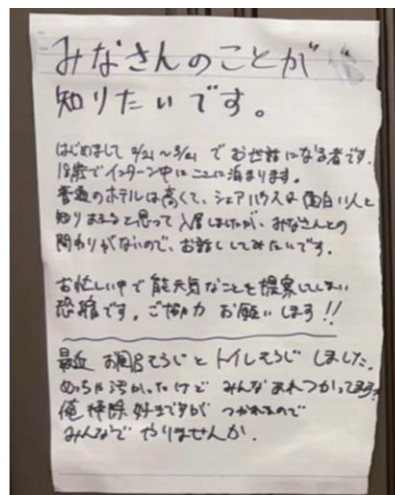 みなさんのことが
知りたいです。
はじめまして 2/21〜3/21 で お世話になる者です.
18歳で インターン中に ここに 泊まります。
普通のホテルは高くて、シェアハウスは 面白い人と
知りあえると思って 入居しましたが、みなさんとの
関わりがないので、お話ししてみたいです。
お忙しい中で 能天気なことを 提案してしまい
恐縮です。ご協力 お願いします!!
最近 お風呂そうじと トイレそうじ しました.
めっちゃ汚かったけど みんな あれつかってます?
俺 掃除 好きですが つかれるので
みんなで やりませんか.